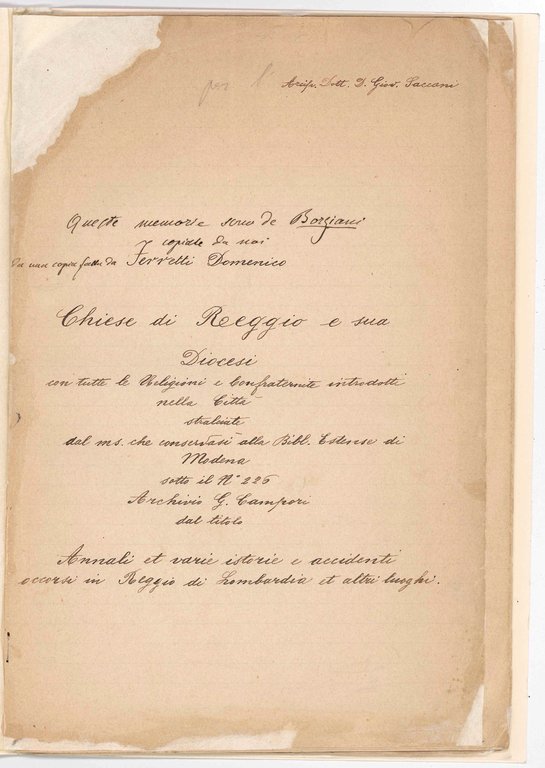 per l'
Arcipr. Dott. D. Giov. Saccani
Queste memorie sono de Borziani
copiate da noi
da una copia fatta da Ferretti Domenico
Chiese di Reggio e sua
Diocesi
con tutte le Religioni e Confraternite introdotti
nella Città
stralciate
dal ms. che conservasi alla Bibl. Estense di
Modena
sotto il N° 226
Archivio G. Campori
dal titolo
Annali et varie istorie e accidenti
occorsi in Reggio di Lombardia et altri luoghi.